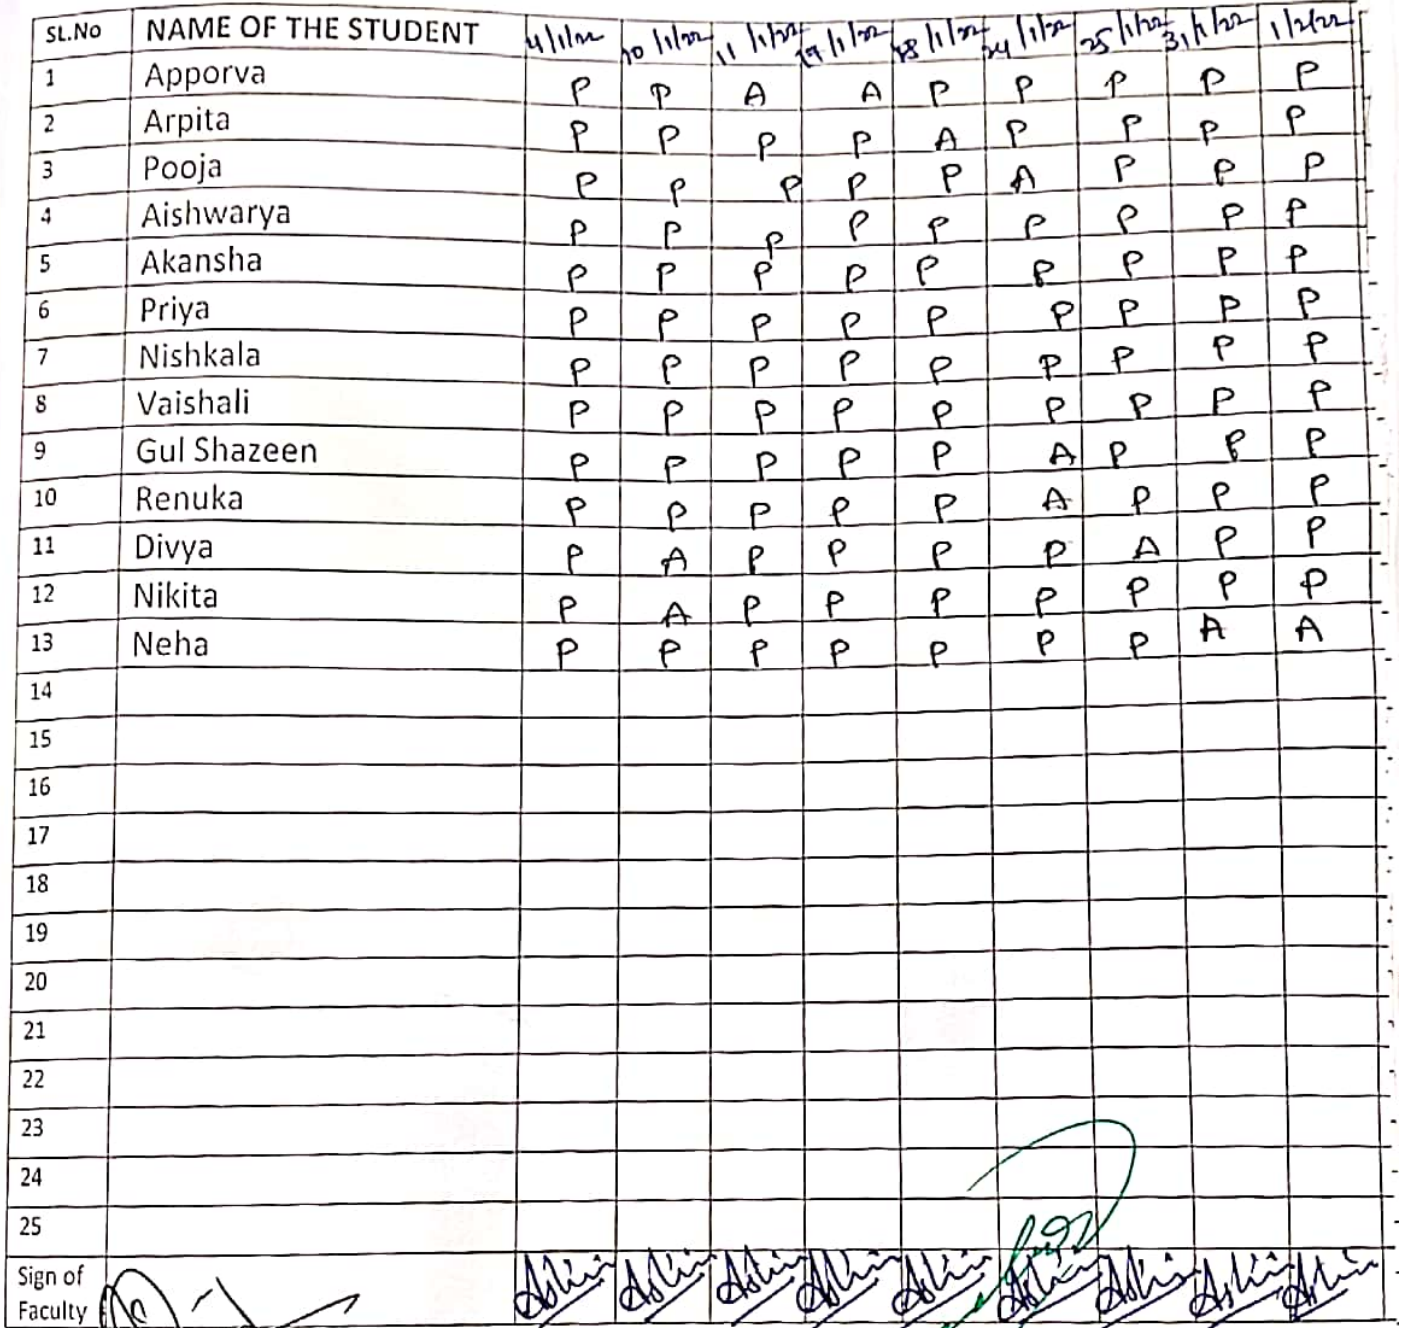 SL.No NAME OF THE STUDENT 4/1/22 10/1/22 11/1/22 17/1/22 18/1/22 24/1/22 25/1/22 31/1/22 1/2/22
1 Apporva P P A A P P P P P
2 Arpita P P P P A P P P P
3 Pooja P P P P P A P P P
4 Aishwarya P P P P P P P P P
5 Akansha P P P P P P P P P
6 Priya P P P P P P P P P
7 Nishkala P P P P P P P P P
8 Vaishali P P P P P P P P P
9 Gul Shazeen P P P P P A P P P
10 Renuka P P P P P A P P P
11 Divya P A P P P P A P P
12 Nikita P A P P P P P P P
13 Neha P P P P P P P A A
14
15
16
17
18
19
20
21
22
23
24
25
Sign of
Faculty